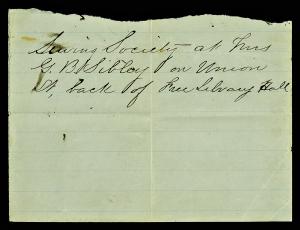 Sewing Society at Mrs
G. B. Sibley on Union
St, back of Free Library Hall